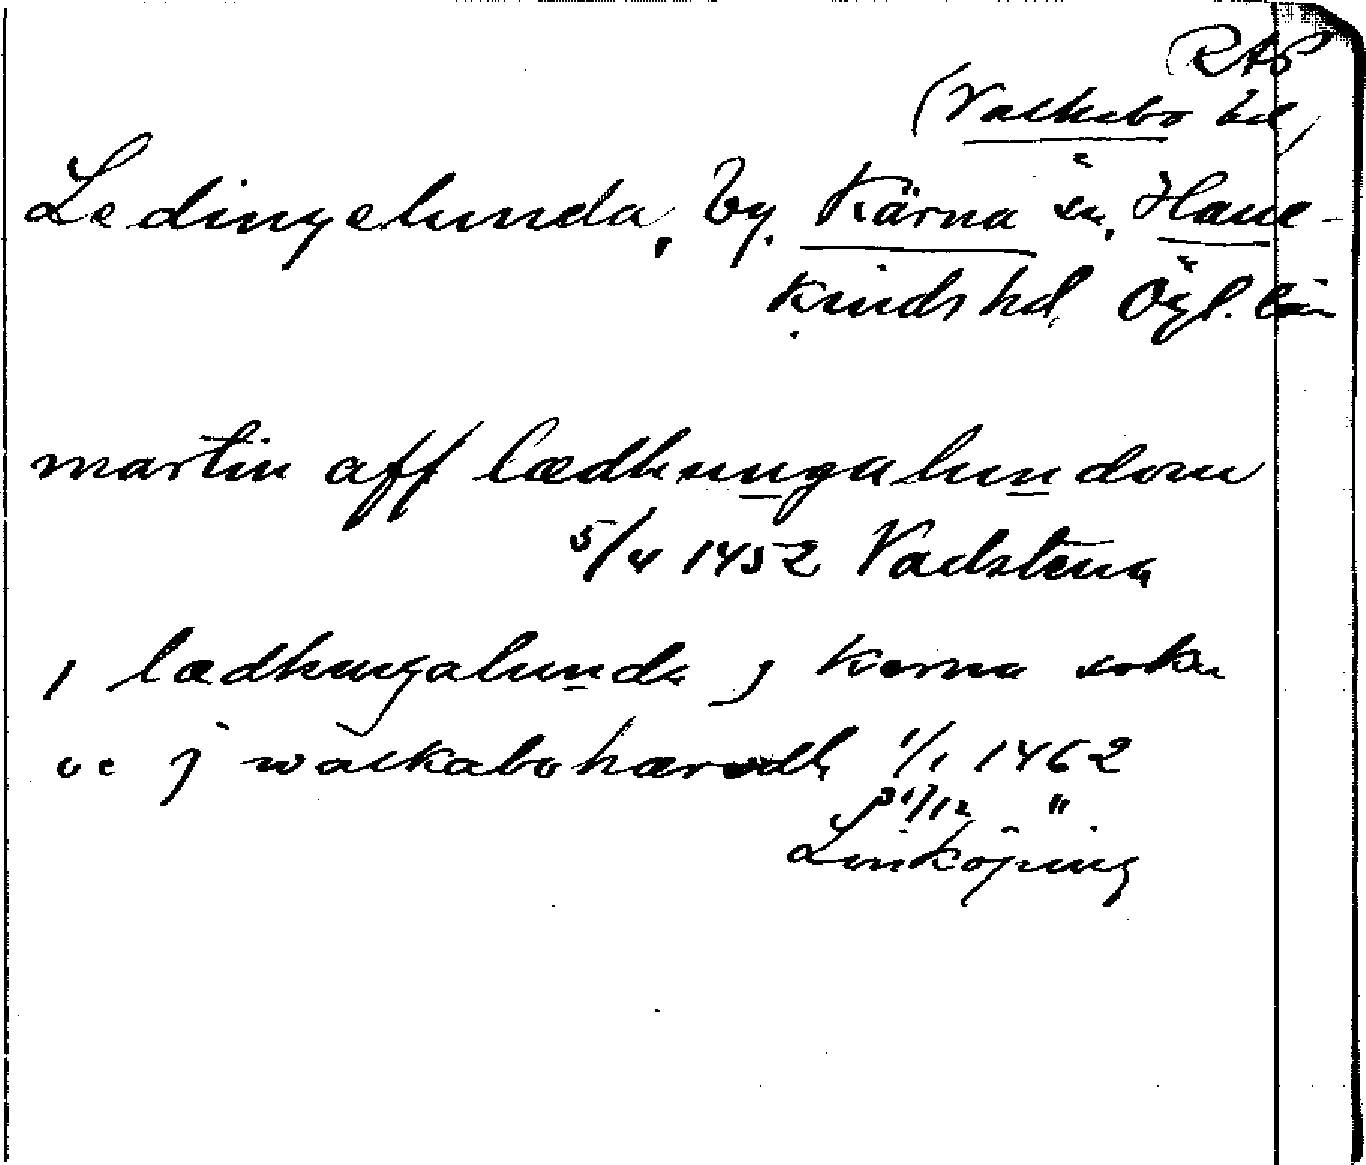 RAP
(Valkebo hd)
Ledingelunda, by. Kärna sn, Hane-
kinds hd. Ögl. län
martin aff lædhungalundom
5/4 1452 Vadstena
j lædhungalunda j kærna sokn
oc j walkabohæradh 1/1 1462
31/12 "
Linköping